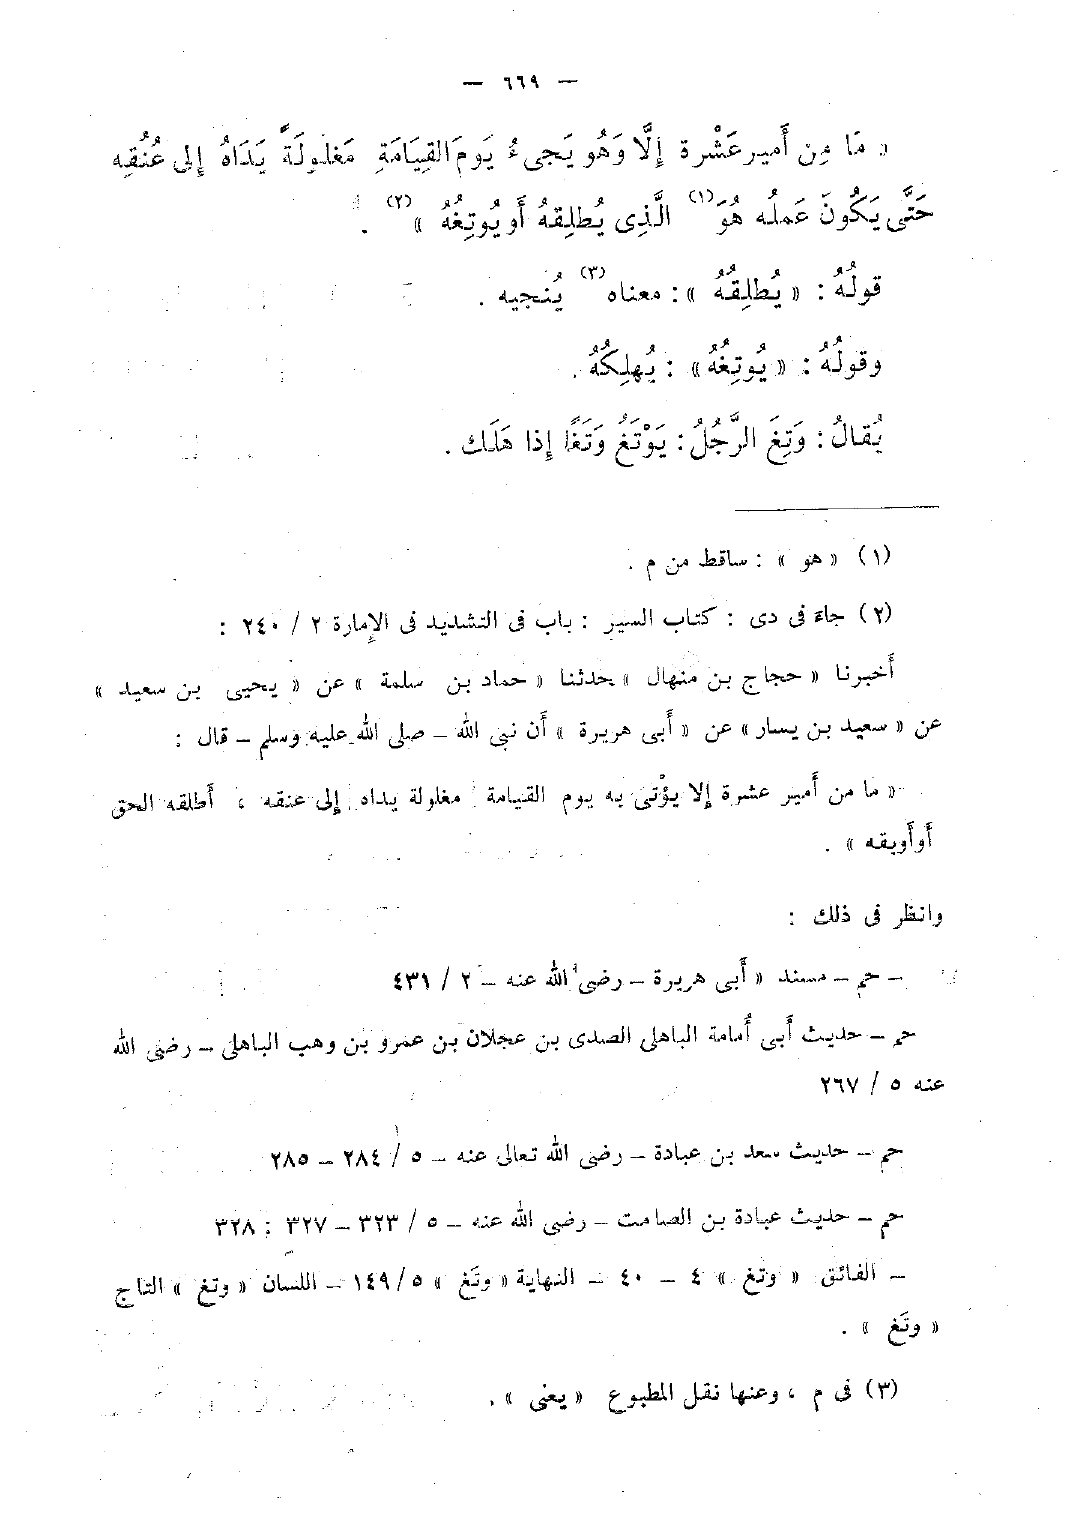 — ٦٦٩ —
« مَا مِن أَميرِ عَشْرة إِلَّا وَهُو يَجىءُ يَومَ القِيَامَةِ مَغلولَةً يَدَاهُ إِلى عُنُقِه
حَتَّى يَكُونَ عَملُه هُوَ(١) الَّذِى يُطلِقهُ أَو يُوتِغُهُ(٢) » .
قولُهُ : « يُطلِقُهُ » : معناه(٣) يُنجيه .
وقولُهُ : « يُوتِغُهُ » : يُهلِكُهُ .
يُقالُ : وَتِغَ الرَّجُلُ : يَوْتَغُ وَتَغًا إِذا هَلَك .
(١) « هو » : ساقط من م .
(٢) جاء فى دى : كتاب السير : باب فى التشديد فى الإِمارة ٢ / ٢٤٠ :
أَخبرنا « حجاج بن منهال » حدثنا « حماد بن سلمة » عن « يحيى بن سعيد »
عن « سعيد بن يسار » عن « أَبى هريرة » أَن نبى الله – صلى الله عليه وسلم – قال :
« ما من أَمير عشرة إلا يؤْتى به يوم القيامة مغلولة يداه إلى عنقه ، أَطلقه الحق
أَو أَوبقه » .
وانظر فى ذلك :
– حم – مسند « أَبى هريرة – رضى الله عنه – ٢ / ٤٣١
حم – حديث أَبى أُمامة الباهلى الصدى بن عجلان بن عمرو بن وهب الباهلى – رضى الله
عنه ٥ / ٢٦٧
حم – حديث سعد بن عبادة – رضى الله تعالى عنه – ٥ / ٢٨٤ – ٢٨٥
حم – حديث عبادة بن الصامت – رضى الله عنه – ٥ / ٣٢٣ – ٣٢٧ : ٣٢٨
– الفائق « وتغ » ٤ – ٤٠ – النهاية « وتَغ » ٥/ ١٤٩ – اللسان « وتغ » التاج
« وتَغ » .
(٣) فى م ، وعنها نقل المطبوع « يعنى » .